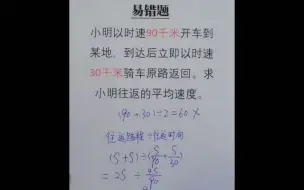 易错题
小明以时速90千米开车到
某地，到达后立即以时速
30千米骑车原路返回。求
小明往返的平均速度。
(90+30)÷2=60 ×
往返路程÷往返时间
(S+S)÷(S/90+S/30)
=2S÷4S/90